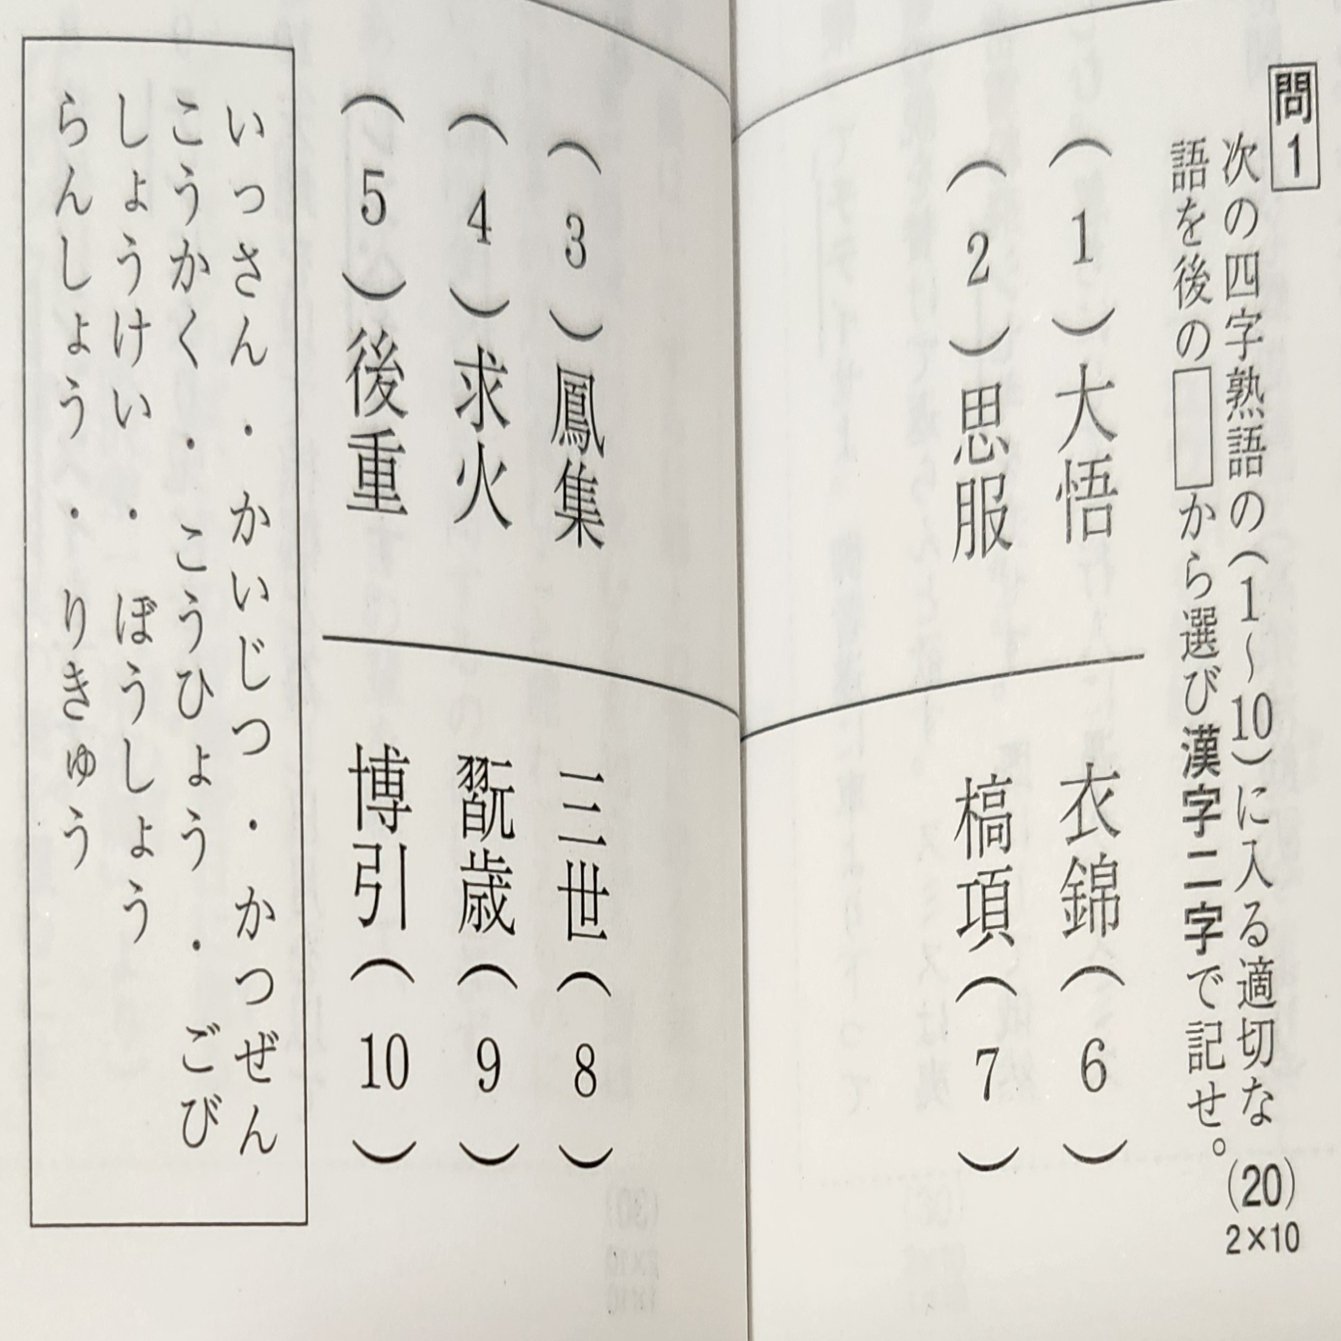 問1
次の四字熟語の(1〜10)に入る適切な
語を後の□から選び漢字二字で記せ。
(20)
2×10
(1)大悟
(2)思服
(3)鳳集
(4)求火
(5)後重
衣錦(6)
槁項(7)
三世(8)
翫歳(9)
博引(10)
いっさん・かいじつ・かつぜん
こうかく・こうひょう・ごび
しょうけい・ぼうしょう
らんしょう・りきゅう